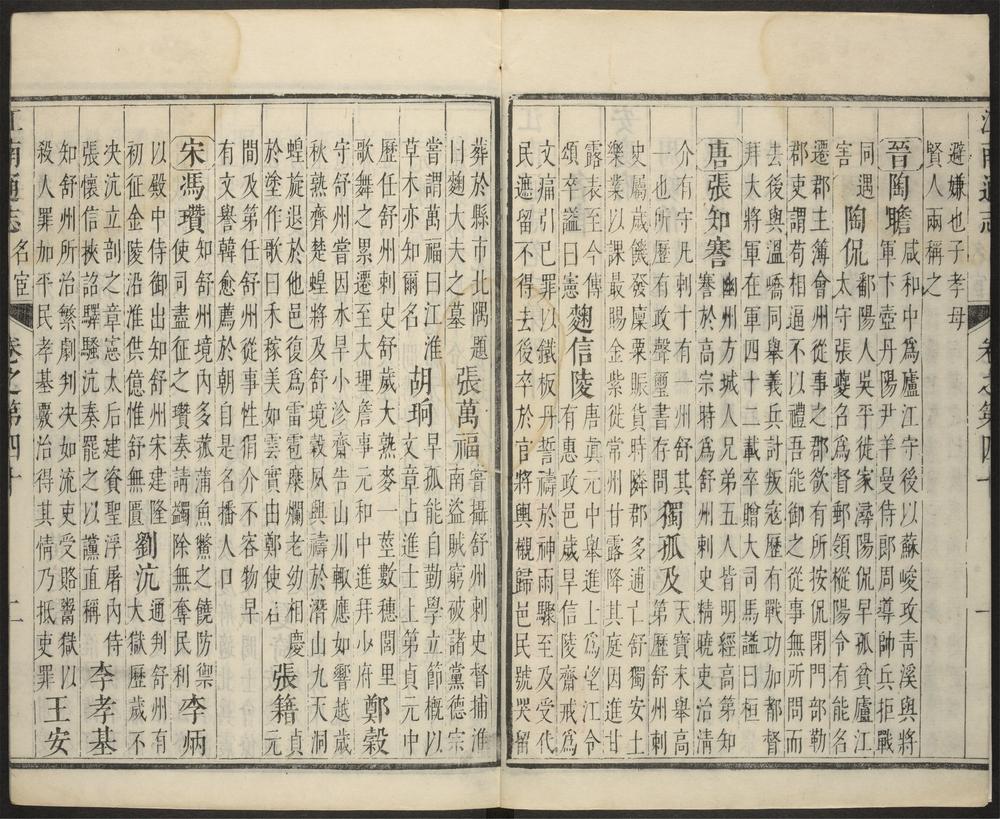 避嫌也子孝母
賢人兩稱之
晉陶瞻咸和中爲廬江守後以蘇峻攻青溪與將
軍卞壺丹陽尹羊曼侍郎周導帥兵拒戰
同遇害陶侃鄱陽人吳平徙家潯陽侃早孤貧廬江
太守張夔名爲督郵領樅陽令有能名
遷郡主簿會州從事之郡欲有所按侃閉門部勒
郡吏謂苟相逼不以禮吾能御之從事無所問而
去後與溫嶠同舉義兵討叛寇歷有戰功加都督
拜大將軍在軍四十二載卒贈大司馬諡曰桓
唐張知謇幽州方城人兄弟五人皆明經高第知
謇於高宗時爲舒州刺史精曉吏治清
介有守凡刺十有一州舒其
一也所歷有政聲璽書存問獨孤及天寶末舉高
第歷舒州刺
史屬歲饑發廩粟賑貨時隣郡多逋亡舒獨安土
樂業以課最賜金紫徙常州甘露降其庭因進甘
露表至今傳
頌卒諡曰憲麴信陵唐貞元中舉進士爲望江令
有惠政邑歲旱信陵齋戒爲
文痛引已罪以鐵板丹誓禱於神雨驟至及受代
民遮留不得去後卒於官將輿櫬歸邑民號哭留
江南通志名宦卷之第四十二
葬於縣市北隅題
曰麴大夫之墓張萬福嘗攝舒州刺史督捕淮
南盜賊窮破諸黨德宗
嘗謂萬福曰江淮
草木亦知爾名胡珦早孤能自勤學立節概以
文章占進士上第貞元中
歷任舒州刺史舒歲大熟麥一莖數穗閭里
歌舞之累遷至大理詹事元和中進拜少府鄭穀
守舒州嘗因水旱小沴齋告山川輒應如響越歲
秋熟齊楚蝗將及舒境穀夙興禱於潛山九天洞
蝗旋退於他邑復爲雷雹糜爛老幼相慶張籍貞
於塗作歌曰禾稼美如雲實由鄭使君元
間及第任舒州從事性狷介不容物早
有文譽韓愈薦於朝自是名播人口
宋馮瓚知舒州境內多菰蒲魚鱉之饒防禦
使司盡征之瓚奏請蠲除無奪民利李炳
以殿中侍御出知舒州宋建隆
初征金陵沿淮供億惟舒無匱劉沆通判舒州有
大獄歷歲不
决沆立剖之章憲太后建資聖浮屠內侍
張懷信挾詔驛騷沆奏罷之以讜直稱李孝基
知舒州所治繁劇判决如流吏受賂鬻獄以
殺人罪加平民孝基覈治得其情乃抵吏罪王安